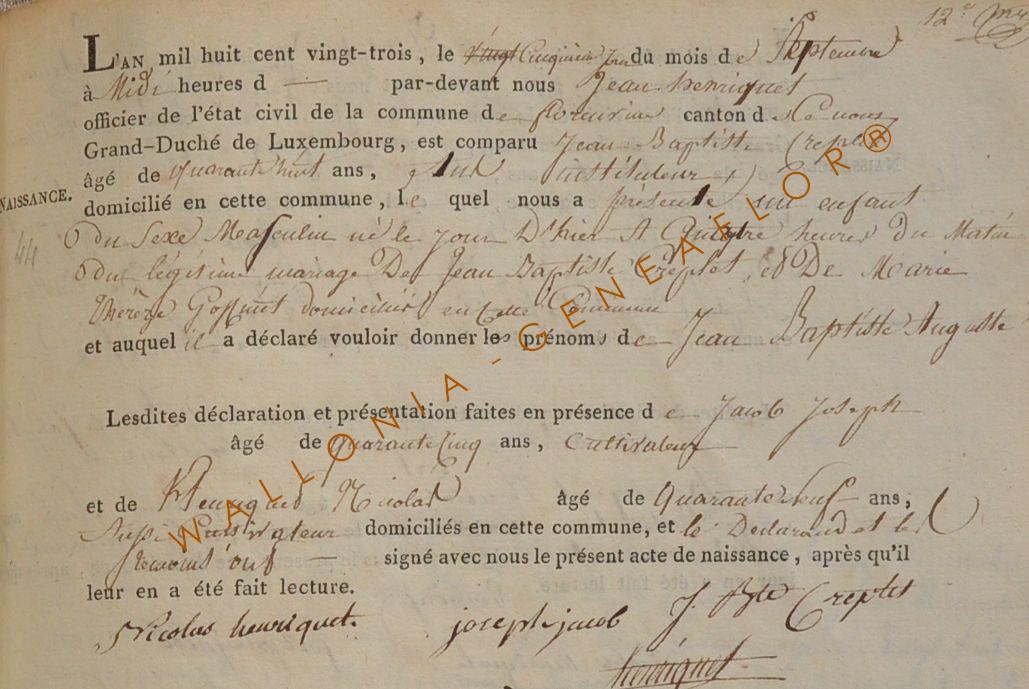 12e
L'AN mil huit cent vingt-trois, le vingt Cinquieme Jour du mois de Septembre
à Midi heures d — par-devant nous Jean henriquet
officier de l'état civil de la commune de canton de
Grand-Duché de Luxembourg, est comparu Jean Baptiste Creplet
âgé de quarante huit ans, instituteur
NAISSANCE.
domicilié en cette commune, le quel nous a présenté un enfant
44
du Sexe Masculin né le Jour D'hier A Quatre heures Du Matin
du légitime mariage De Jean Baptiste Creplet, et De Marie
thérèze Goffinet domiciliés en Cette Commune
et auquel il a déclaré vouloir donner les prénoms de Jean Baptiste Auguste
Lesdites déclaration et présentation faites en présence de Jacob Joseph
âgé de quarante Cinq ans, Cultivateur
et de Henriquet Nicolas âgé de Quarante Neuf ans,
Aussi Cultivateur domiciliés en cette commune, et le Declarand et les
témoins ont — signé avec nous le présent acte de naissance, après qu'il
leur en a été fait lecture.
Nicolas henriquet. joseph jacob J. Bte Creplet
henriquet
WALLONIA - GENEAFLOR®